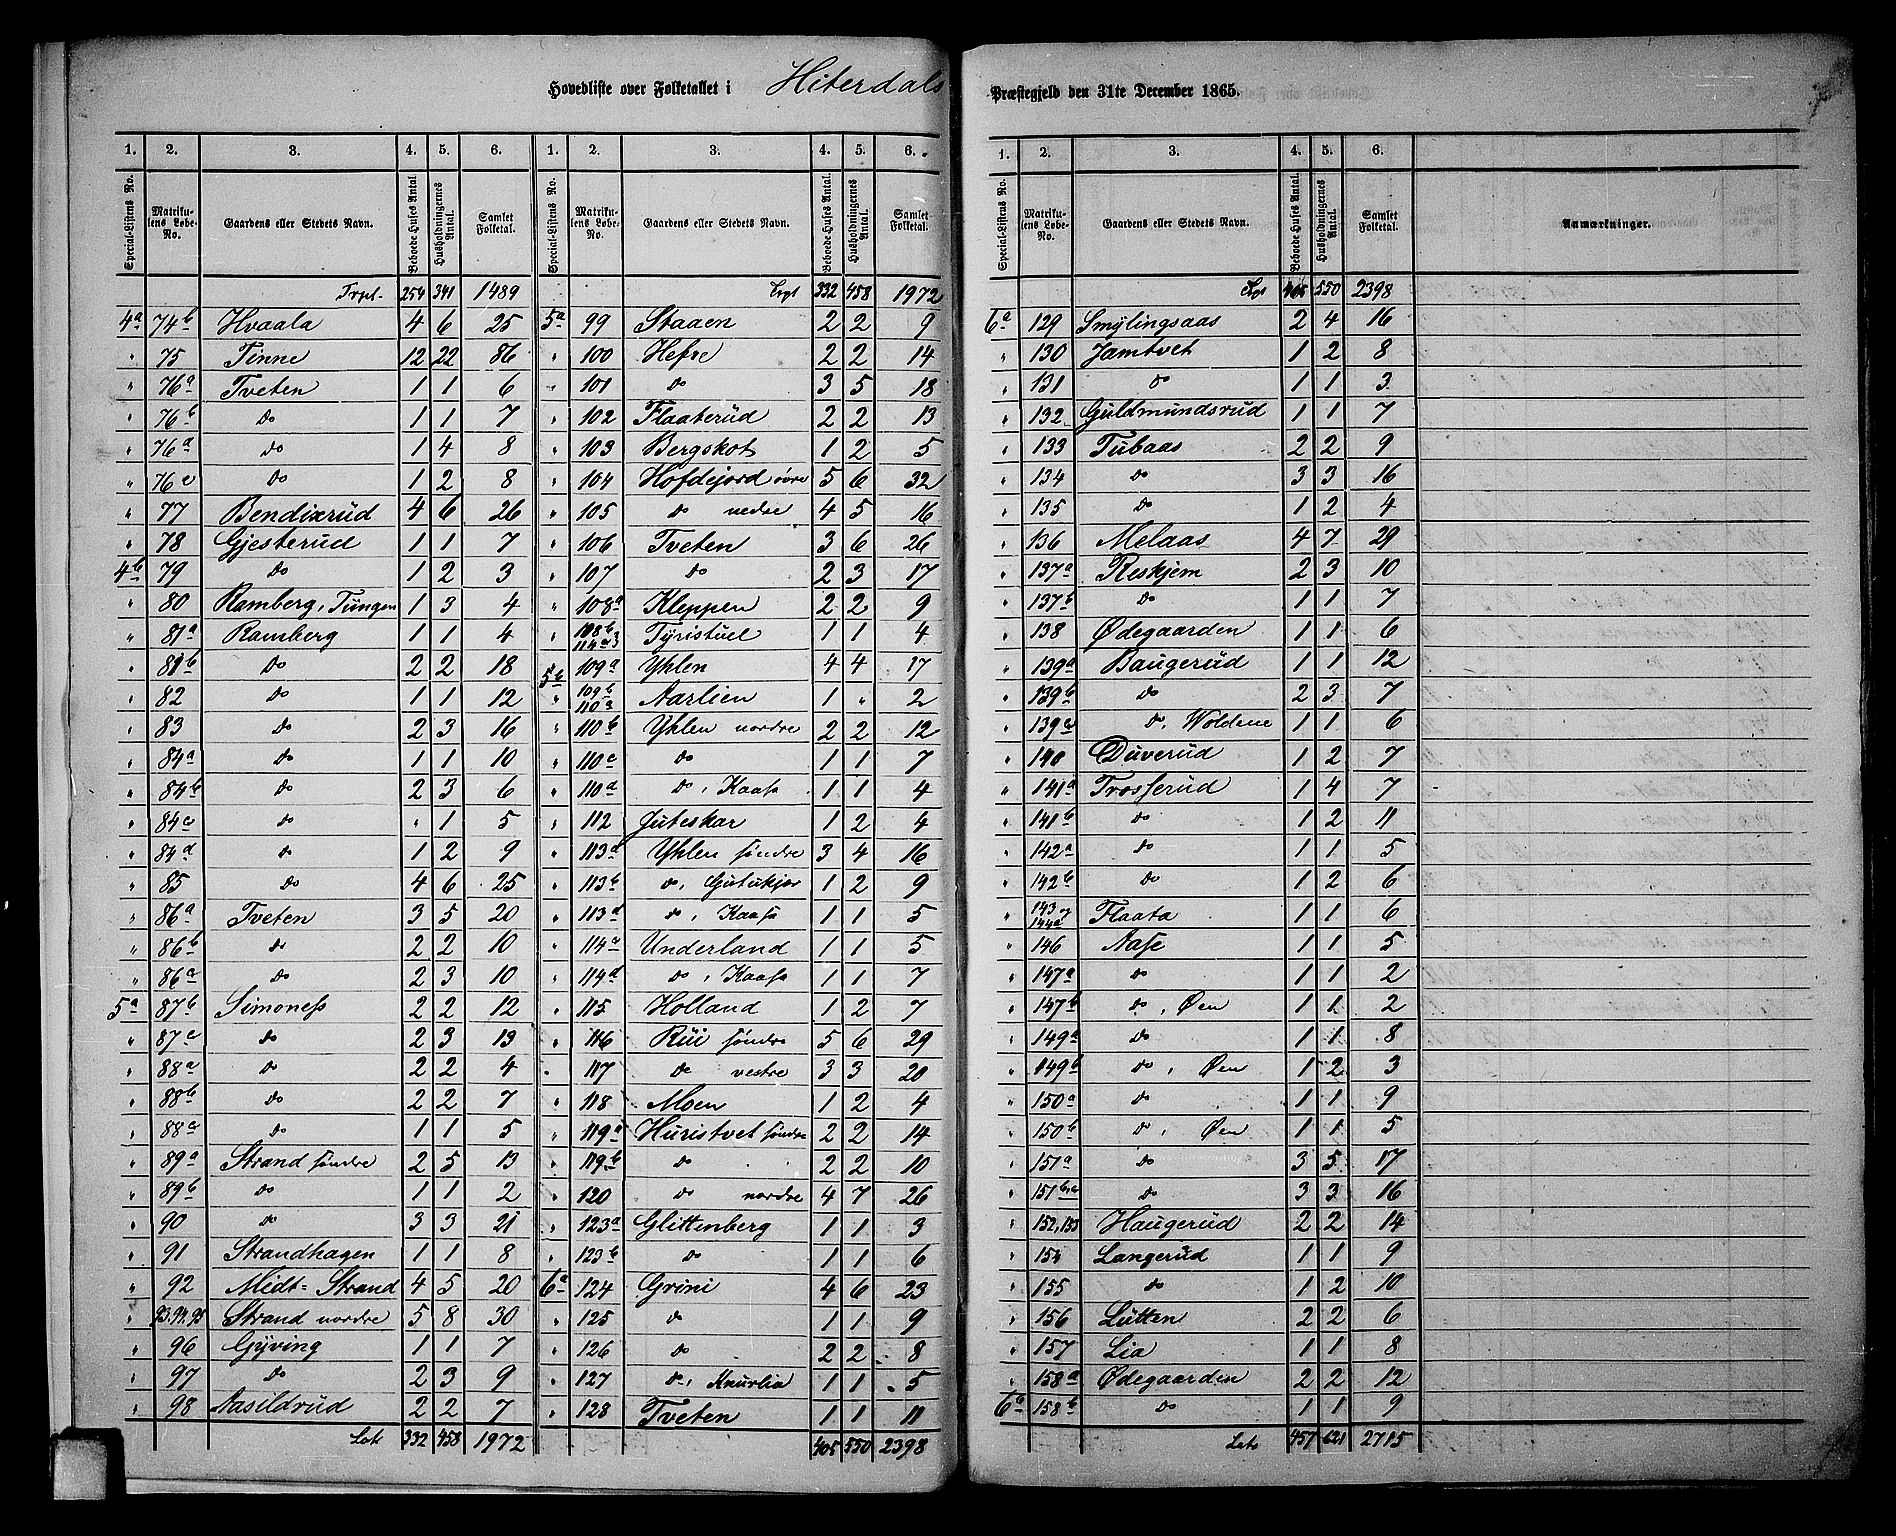 Hovedliste over Folketallet i Hiterdals Præstegjeld den 31te December 1865.
1. 2. 3. 4. 5. 6. 1. 2. 3. 4. 5. 6.
Special-Listens No. Matrikulens Løbe-No. Gaardens eller Stedets Navn. Beboede Huses Antal. Husholdningernes Antal. Samlet Folketal. Special-Listens No. Matrikulens Løbe-No. Gaardens eller Stedets Navn. Beboede Huses Antal. Husholdningernes Antal. Samlet Folketal.
Trpt. 254 341 1489 Trpt 332 458 1972
4a 74b Hvaala 4 6 25 5a 99 Staaen 2 2 9
" 75 Tinne 12 22 86 " 100 Hefre 2 2 14
" 76a Tveten 1 1 6 " 101 do 3 5 18
" 76b do 1 1 7 " 102 Flaaterud 2 2 13
" 76a do 1 4 8 " 103 Bergskot 1 2 5
" 76e do 1 2 8 " 104 Hofdejord øvre 5 6 32
" 77 Bendixrud 4 6 26 " 105 do nedre 4 5 16
" 78 Gjesterud 1 1 7 " 106 Tveten 3 6 26
4b 79 do 1 2 3 " 107 do 2 3 17
" 80 Ramberg, Tungen 1 3 4 " 108a Kleppen 2 2 9
" 81a Ramberg 1 1 4 " 108b 114a3 Tyristuel 1 1 4
" 81b do 2 2 18 5b 109a Yhlen 4 4 17
" 82 do 1 1 12 " 109b 110a Aarlien 1 " 2
" 83 do 2 3 16 " 110b Yhlen nordre 2 2 12
" 84a do 1 1 10 " 110c do 1 1 7
" 84b do 2 3 6 " 110d do, Kaasa 1 1 4
" 84c do " 1 5 " 112 Juteskar 1 2 4
" 84d do 1 2 9 " 113a Yhlen søndre 3 4 16
" 85 do 4 6 25 " 113b do, Gutukjær 1 2 9
" 86a Tveten 3 5 20 " 113d do, Kaasa 1 1 5
" 86b do 2 2 10 " 114c Underland 1 1 5
" 86c do 2 3 10 " 114d do, Kaasa 1 1 7
5a 87b Simoness 2 2 12 " 115 Holland 1 2 7
" 87c do 2 3 13 " 116 Rui søndre 5 6 29
" 88a do 2 2 4 " 117 do vestre 3 3 20
" 88b do 2 2 7 " 118 Moen 1 2 4
" 88c do 1 1 5 " 119a Huristvet søndre 2 2 14
" 89a Strand søndre 2 5 13 " 119b do 2 2 10
" 89b do 1 1 2 " 120 do nordre 4 7 26
" 90 do 3 3 21 " 123a Glittenberg 1 1 3
" 91 Strandhagen 1 1 8 " 123b do 1 1 6
" 92 Midt-Strand 4 5 20 6a 124 Grini 4 6 23
" 93.94.95 Strand nordre 5 8 30 " 125 do 1 1 9
" 96 Gyving 1 1 7 " 126 do 2 2 8
" 97 do 2 3 9 " 127 do, Knurlia 1 1 5
" 98 Aasildrud 2 2 7 " 128 Tveten 1 1 11
Lat. 332 458 1972 405 550 2398
1. 2. 3. 4. 5. 6.
Special-Listens No. Matrikulens Løbe-No. Gaardens eller Stedets Navn. Beboede Huses Antal. Husholdningernes Antal. Samlet Folketal. Anmærkninger.
Trpt 405 550 2398
6a 129 Smylingsaas 2 4 16
" 130 Jamtvet 1 2 8
" 131 do 1 1 3
" 132 Guldmundsrud 1 1 7
" 133 Tubaas 2 2 9
" 134 do 3 3 16
" 135 do 1 2 4
" 136 Melaas 4 7 29
" 137a Reskjem 2 3 10
" 137b do 1 1 7
" 138 Ødegaarden 1 1 6
" 139a Baugerud 1 1 12
" 139b do 2 3 7
" 139c do, Woldene 1 1 6
" 140 Duverud 1 2 7
" 141a Trosserud 1 4 7
" 141b do 1 2 11
" 142a do 1 1 5
" 142b do 1 2 6
" 143 144a Flaata 1 1 6
" 146 Aase 1 1 5
" 147a do 1 1 2
" 147b do, Øen 1 1 2
" 149a do 1 1 8
" 149b do, Øen 1 2 3
" 150a do 1 1 9
" 150b do, Øen 1 1 5
" 151a do 3 5 17
" 151b,c do 3 3 16
" 152,153 Haugerud 2 2 14
" 154 Langerud 1 1 9
" 155 do 1 2 10
" 156 Lutten 2 2 6
" 157 Lia 1 1 8
" 158a Ødegaarden 2 2 12
6a 158b do 1 1 9
Lat. 457 621 2715